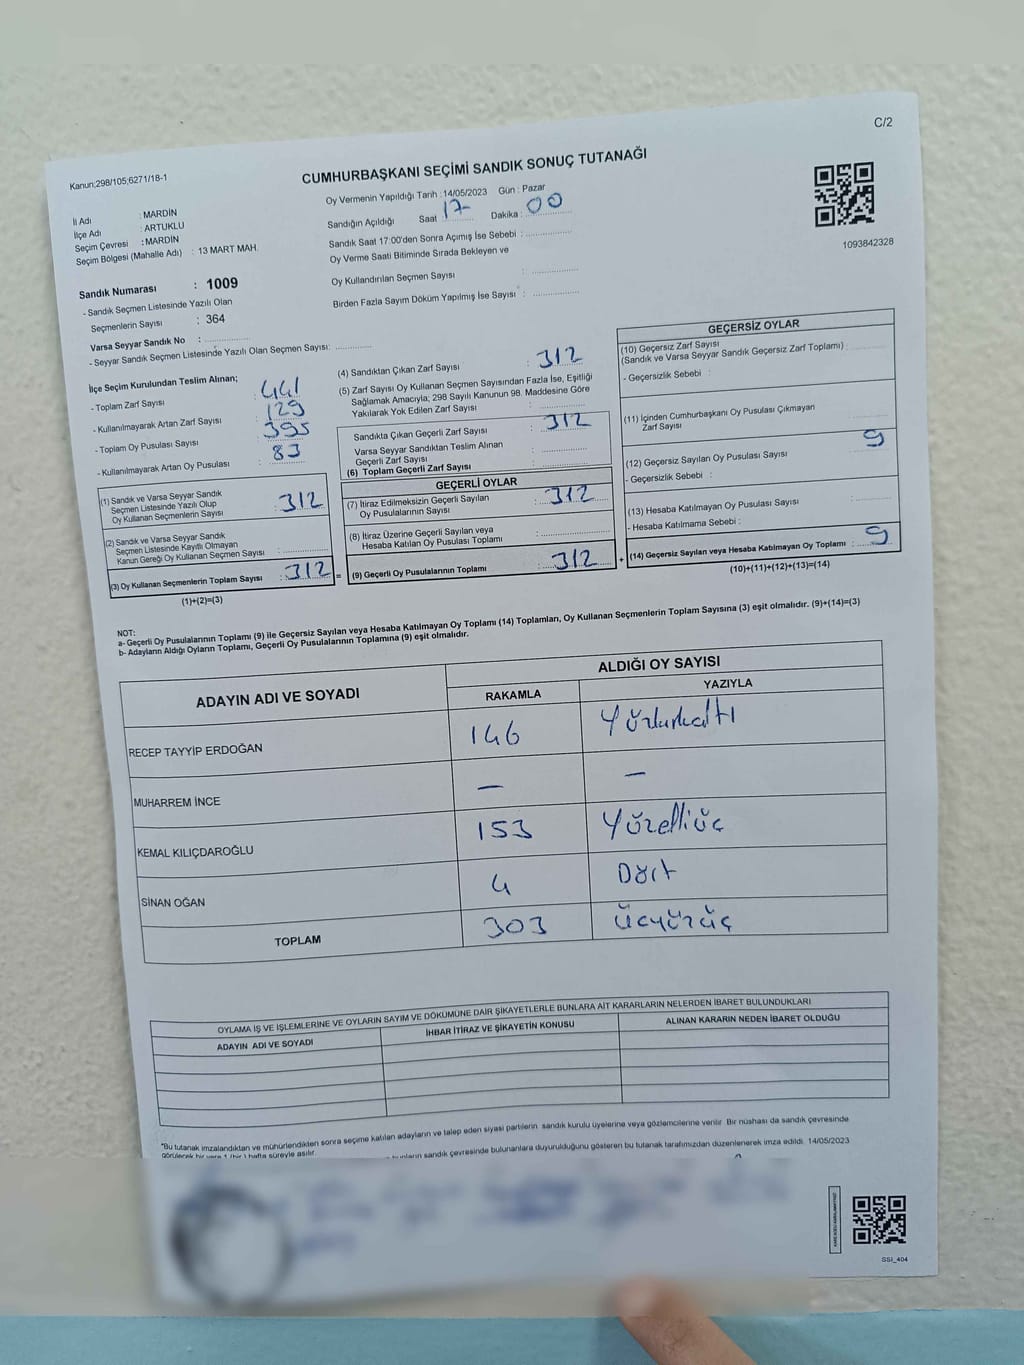 C/2
Kanun;298/105;6271/18-1
CUMHURBAŞKANI SEÇİMİ SANDIK SONUÇ TUTANAĞI
1093842328
İl Adı : MARDİN
İlçe Adı : ARTUKLU
Seçim Çevresi : MARDİN
Seçim Bölgesi (Mahalle Adı) : 13 MART MAH.
Sandık Numarası : 1009
- Sandık Seçmen Listesinde Yazılı Olan
Seçmenlerin Sayısı : 364
Varsa Seyyar Sandık No :
- Seyyar Sandık Seçmen Listesinde Yazılı Olan Seçmen Sayısı:
Oy Vermenin Yapıldığı Tarih : 14/05/2023 Gün : Pazar
Sandığın Açıldığı Saat 17 Dakika : 00
Sandık Saat 17:00'den Sonra Açımış İse Sebebi :
Oy Verme Saati Bitiminde Sırada Bekleyen ve
Oy Kullandırılan Seçmen Sayısı :
Birden Fazla Sayım Döküm Yapılmış İse Sayısı :
İlçe Seçim Kurulundan Teslim Alınan;
- Toplam Zarf Sayısı : 441
- Kullanılmayarak Artan Zarf Sayısı : 129
- Toplam Oy Pusulası Sayısı : 395
- Kullanılmayarak Artan Oy Pusulası : 83
(1) Sandık ve Varsa Seyyar Sandık
Seçmen Listesinde Yazılı Olup
Oy Kullanan Seçmenlerin Sayısı : 312
(2) Sandık ve Varsa Seyyar Sandık
Seçmen Listesinde Kayıtlı Olmayan
Kanun Gereği Oy Kullanan Seçmen Sayısı :
(3) Oy Kullanan Seçmenlerin Toplam Sayısı : 312 =
(1)+(2)=(3)
(4) Sandıktan Çıkan Zarf Sayısı : 312
(5) Zarf Sayısı Oy Kullanan Seçmen Sayısından Fazla İse, Eşitliği
Sağlamak Amacıyla; 298 Sayılı Kanunun 98. Maddesine Göre
Yakılarak Yok Edilen Zarf Sayısı :
Sandıkta Çıkan Geçerli Zarf Sayısı : 312
Varsa Seyyar Sandıktan Teslim Alınan
Geçerli Zarf Sayısı :
(6) Toplam Geçerli Zarf Sayısı :
GEÇERLİ OYLAR
(7) İtiraz Edilmeksizin Geçerli Sayılan
Oy Pusulalarının Sayısı : 312
(8) İtiraz Üzerine Geçerli Sayılan veya
Hesaba Katılan Oy Pusulası Toplamı :
(9) Geçerli Oy Pusulalarının Toplamı : 312 +
GEÇERSİZ OYLAR
(10) Geçersiz Zarf Sayısı
(Sandık ve Varsa Seyyar Sandık Geçersiz Zarf Toplamı) :
- Geçersizlik Sebebi :
(11) İçinden Cumhurbaşkanı Oy Pusulası Çıkmayan
Zarf Sayısı :
(12) Geçersiz Sayılan Oy Pusulası Sayısı : 9
- Geçersizlik Sebebi :
(13) Hesaba Katılmayan Oy Pusulası Sayısı :
- Hesaba Katılmama Sebebi :
(14) Geçersiz Sayılan veya Hesaba Katılmayan Oy Toplamı : 9
(10)+(11)+(12)+(13)=(14)
NOT:
a- Geçerli Oy Pusulalarının Toplamı (9) ile Geçersiz Sayılan veya Hesaba Katılmayan Oy Toplamı (14) Toplamları, Oy Kullanan Seçmenlerin Toplam Sayısına (3) eşit olmalıdır. (9)+(14)=(3)
b- Adayların Aldığı Oyların Toplamı, Geçerli Oy Pusulalarının Toplamına (9) eşit olmalıdır.
ADAYIN ADI VE SOYADI ALDIĞI OY SAYISI
RAKAMLA YAZIYLA
RECEP TAYYİP ERDOĞAN 146 Yüzkırkaltı
MUHARREM İNCE — —
KEMAL KILIÇDAROĞLU 153 Yüzelliüç
SİNAN OĞAN 4 Dört
TOPLAM 303 üçyüzüç
OYLAMA İŞ VE İŞLEMLERİNE VE OYLARIN SAYIM VE DÖKÜMÜNE DAİR ŞİKAYETLERLE BUNLARA AİT KARARLARIN NELERDEN İBARET BULUNDUKLARI
ADAYIN ADI VE SOYADI İHBAR İTİRAZ VE ŞİKAYETİN KONUSU ALINAN KARARIN NEDEN İBARET OLDUĞU
"Bu tutanak imzalandıktan ve mühürlendikten sonra seçime katılan adayların ve talep eden siyasi partilerin sandık kurulu üyelerine veya gözlemcilerine verilir. Bir nüshası da sandık çevresinde
görülecek bir yere 1 (bir) hafta süreyle asılır.
bunların sandık çevresinde bulunanlara duyurulduğunu gösteren bu tutanak tarafımızdan düzenlenerek imza edildi. 14/05/2023
SSI_404